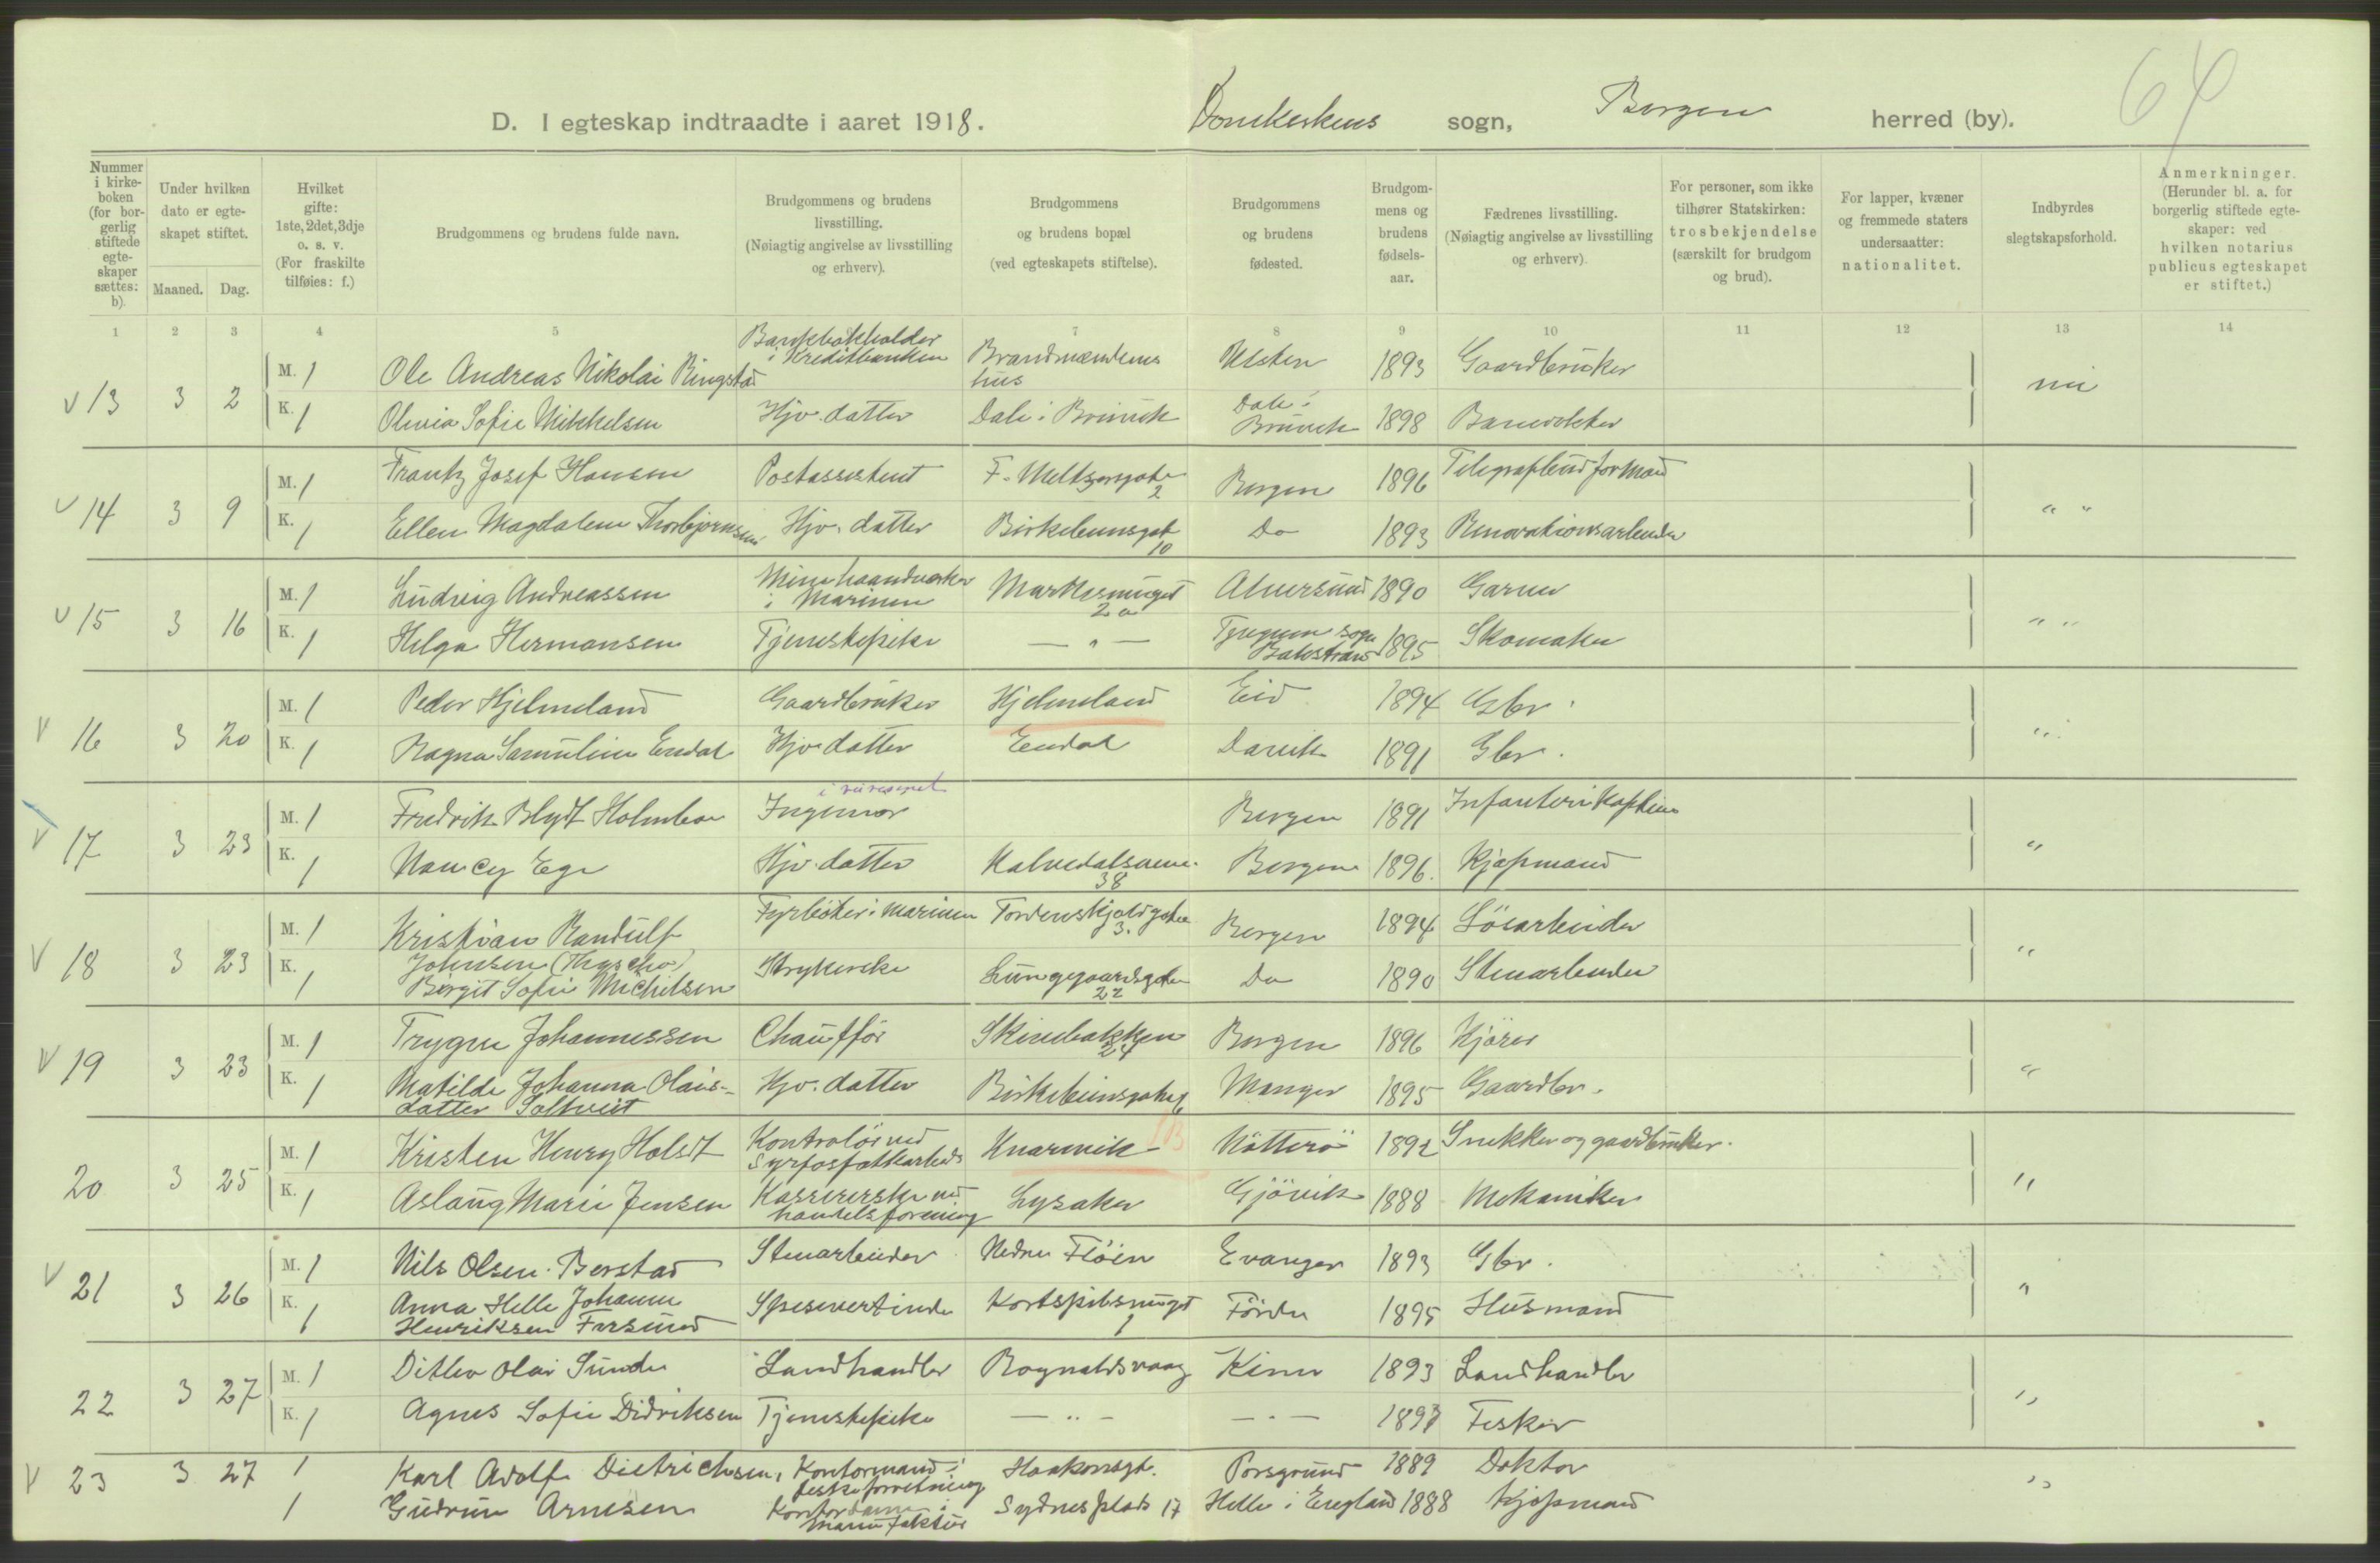 64
D. I egteskap indtraadte i aaret 1918. Domkirkens sogn, Bergen herred (by).
Nummer i kirkeboken (for borgerlig stiftede egteskaper sættes: b).
Under hvilken dato er egteskapet stiftet.
Maaned. Dag.
Hvilket gifte: 1ste, 2det, 3dje o. s. v. (For fraskilte tilføies: f.)
Brudgommens og brudens fulde navn.
Brudgommens og brudens livsstilling. (Nøiagtig angivelse av livsstilling og erhverv).
Brudgommens og brudens bopæl (ved egteskapets stiftelse).
Brudgommens og brudens fødested.
Brudgommens og brudens fødselsaar.
Fædrenes livsstilling. (Nøiagtig angivelse av livsstilling og erhverv).
For personer, som ikke tilhører Statskirken: trosbekjendelse (særskilt for brudgom og brud).
For lapper, kvæner og fremmede staters undersaatter: nationalitet.
Indbyrdes slegtskapsforhold.
Anmerkninger. (Herunder bl. a. for borgerlig stiftede egteskaper: ved hvilken notarius publicus egteskapet er stiftet.)
1 2 3 4 5 7 8 9 10 11 12 13 14
V 13 3 2 M. 1 Ole Andreas Nikolai Ringstad Bankbokholder i Kreditbanken Brandmændenes hus Ulsten 1893 Gaardbruker nei
K. 1 Olivia Sofie Mikkelsen Hjv. datter Dale i Bruvik Dale i Bruvik 1898 Banevokter
V 14 3 9 M. 1 Frantz Josef Hansen Postassistent F. Meltzersgate 2 Bergen 1896 Telegrafbud formand " "
K. 1 Ellen Magdalene Thorbjørnsen Hjv. datter Birkebeinsgt 10 Do 1893 Renovationsarbeider
V 15 3 16 M. 1 Ludvig Andreassen Minehaandverker i Marinen Markesmuget 2a Alversund 1890 Garver " "
K. 1 Helga Hermansen Tjenestepike — " — Tjugum sogn Balestrand 1895 Skomaker
V 16 3 20 M. 1 Peder Hjelmeland Gaardbruker Hjelmeland Eid 1894 Gbr. " "
K. 1 Ragna Samuline Endal Hjv. datter Endal Davik 1891 Gbr.
V 17 3 23 M. 1 Fredrik Blydt Holmboe Ingeniør Bergen 1891 Infanterikaptein "
K. 1 Nancy Ege Hjv. datter Kalvedalsveien 38 Bergen 1896. Kjøpmand
V 18 3 23 M. 1 Kristian Randulf Johnsen Fyrbøter i marinen Tordenskjoldsgaten 3. Bergen 1894 Løsarbeider "
K. 1 Borgit Sofie Michelsen Strykerske Lungegaardsgaten 22 Do 1890 Stenarbeider
V 19 3 23 M. 1 Trygve Johannessen Chauffør Skivebakken 24 Bergen 1896 Kjører "
K. 1 Matilde Johanna Olaisdatter Soltveit Hjv. datter Birkebeinsgaten Manger 1895 Gaardbr.
20 3 25 M. 1 Kristen Henry Holst Kontrolør ved Knarvik Nøtterø 1892 Snekker og gaardbruker. "
K. 1 Aslaug Marie Jensen Kassererske ved handelsforening Lysaker Gjøvik 1888 Mekaniker
V 21 3 26 M. 1 Nils Olsen Berstad Stenarbeider Nedre Fløien Evanger 1893 Gbr. "
K. 1 Anna Helle Johanne Henriksen Farsund Spisevertinde Kortspilsmuget 1 Førde 1895 Husmand
22 3 27 M. 1 Ditlev Olai Sunde Landhandler Rognaldsvaag Kinn 1893 Landhandler "
K. 1 Agnes Sofie Didriksen Tjenestepike — " — — " — 1893 Fisker
V 23 3 27 1 Karl Adolf Dietrichsen, Kontormand i fiskeforretning Haakonsgt. Porsgrund 1889 Doktor "
1 Gudrun Arnesen Kontordame i manufaktur Sydnesplads 17 Helle i England 1888 Kjøpmand